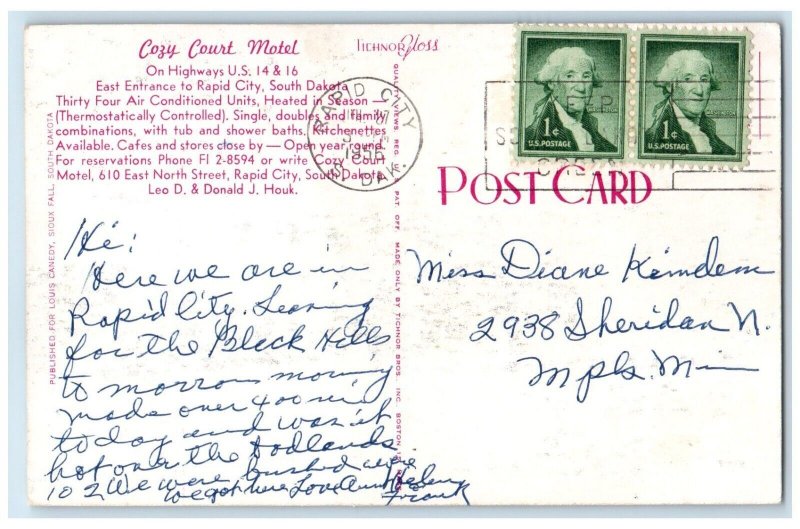 Cozy Court Motel
On Highways U.S. 14 & 16
East Entrance to Rapid City, South Dakota
Thirty Four Air Conditioned Units, Heated in Season —
(Thermostatically Controlled). Single, doubles and family
combinations, with tub and shower baths. Kitchenettes
Available. Cafes and stores close by — Open year round.
For reservations Phone FI 2-8594 or write Cozy Court
Motel, 610 East North Street, Rapid City, South Dakota
Leo D. & Donald J. Houk.
TICHNOR Gloss
QUALITY VIEWS, REG. U. S. PAT. OFF. MADE ONLY BY TICHNOR BROS. INC. BOSTON
PUBLISHED FOR LOUIS CANEDY, SIOUX FALL, SOUTH DAKOTA
RAPID CITY
S. DAK
1¢
U.S. POSTAGE
1¢
U.S. POSTAGE
POST CARD
Hi:
Here we are in
Rapid City. Leaving
for the Black Hills
to morrow morning
made over 400 mi
today and was it
hot over the badlands
10 2 We were bushed
we got here Love Aunt Helen
Frank
Miss Diane
2938 Sheridan N.
Mpls. Minn